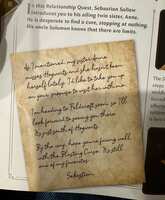 In this Relationship Quest, Sebastian Sallow
introduces you to his ailing twin sister, Anne.
He is desperate to find a cure, stopping at nothing.
He needs Solomon knows that there are limits.
As I mentioned, my sister Anne
misses Hogwarts and she hasn't been
herself lately. I'd like to take you up
on your promise to visit her with me.
I'm heading to Feldcroft soon, so I'll
look forward to seeing you there.
It's just south of Hogwarts.
By the way, hope you're faring well
with the Floating Curse. It's still
one of my favourites.
Sebastian